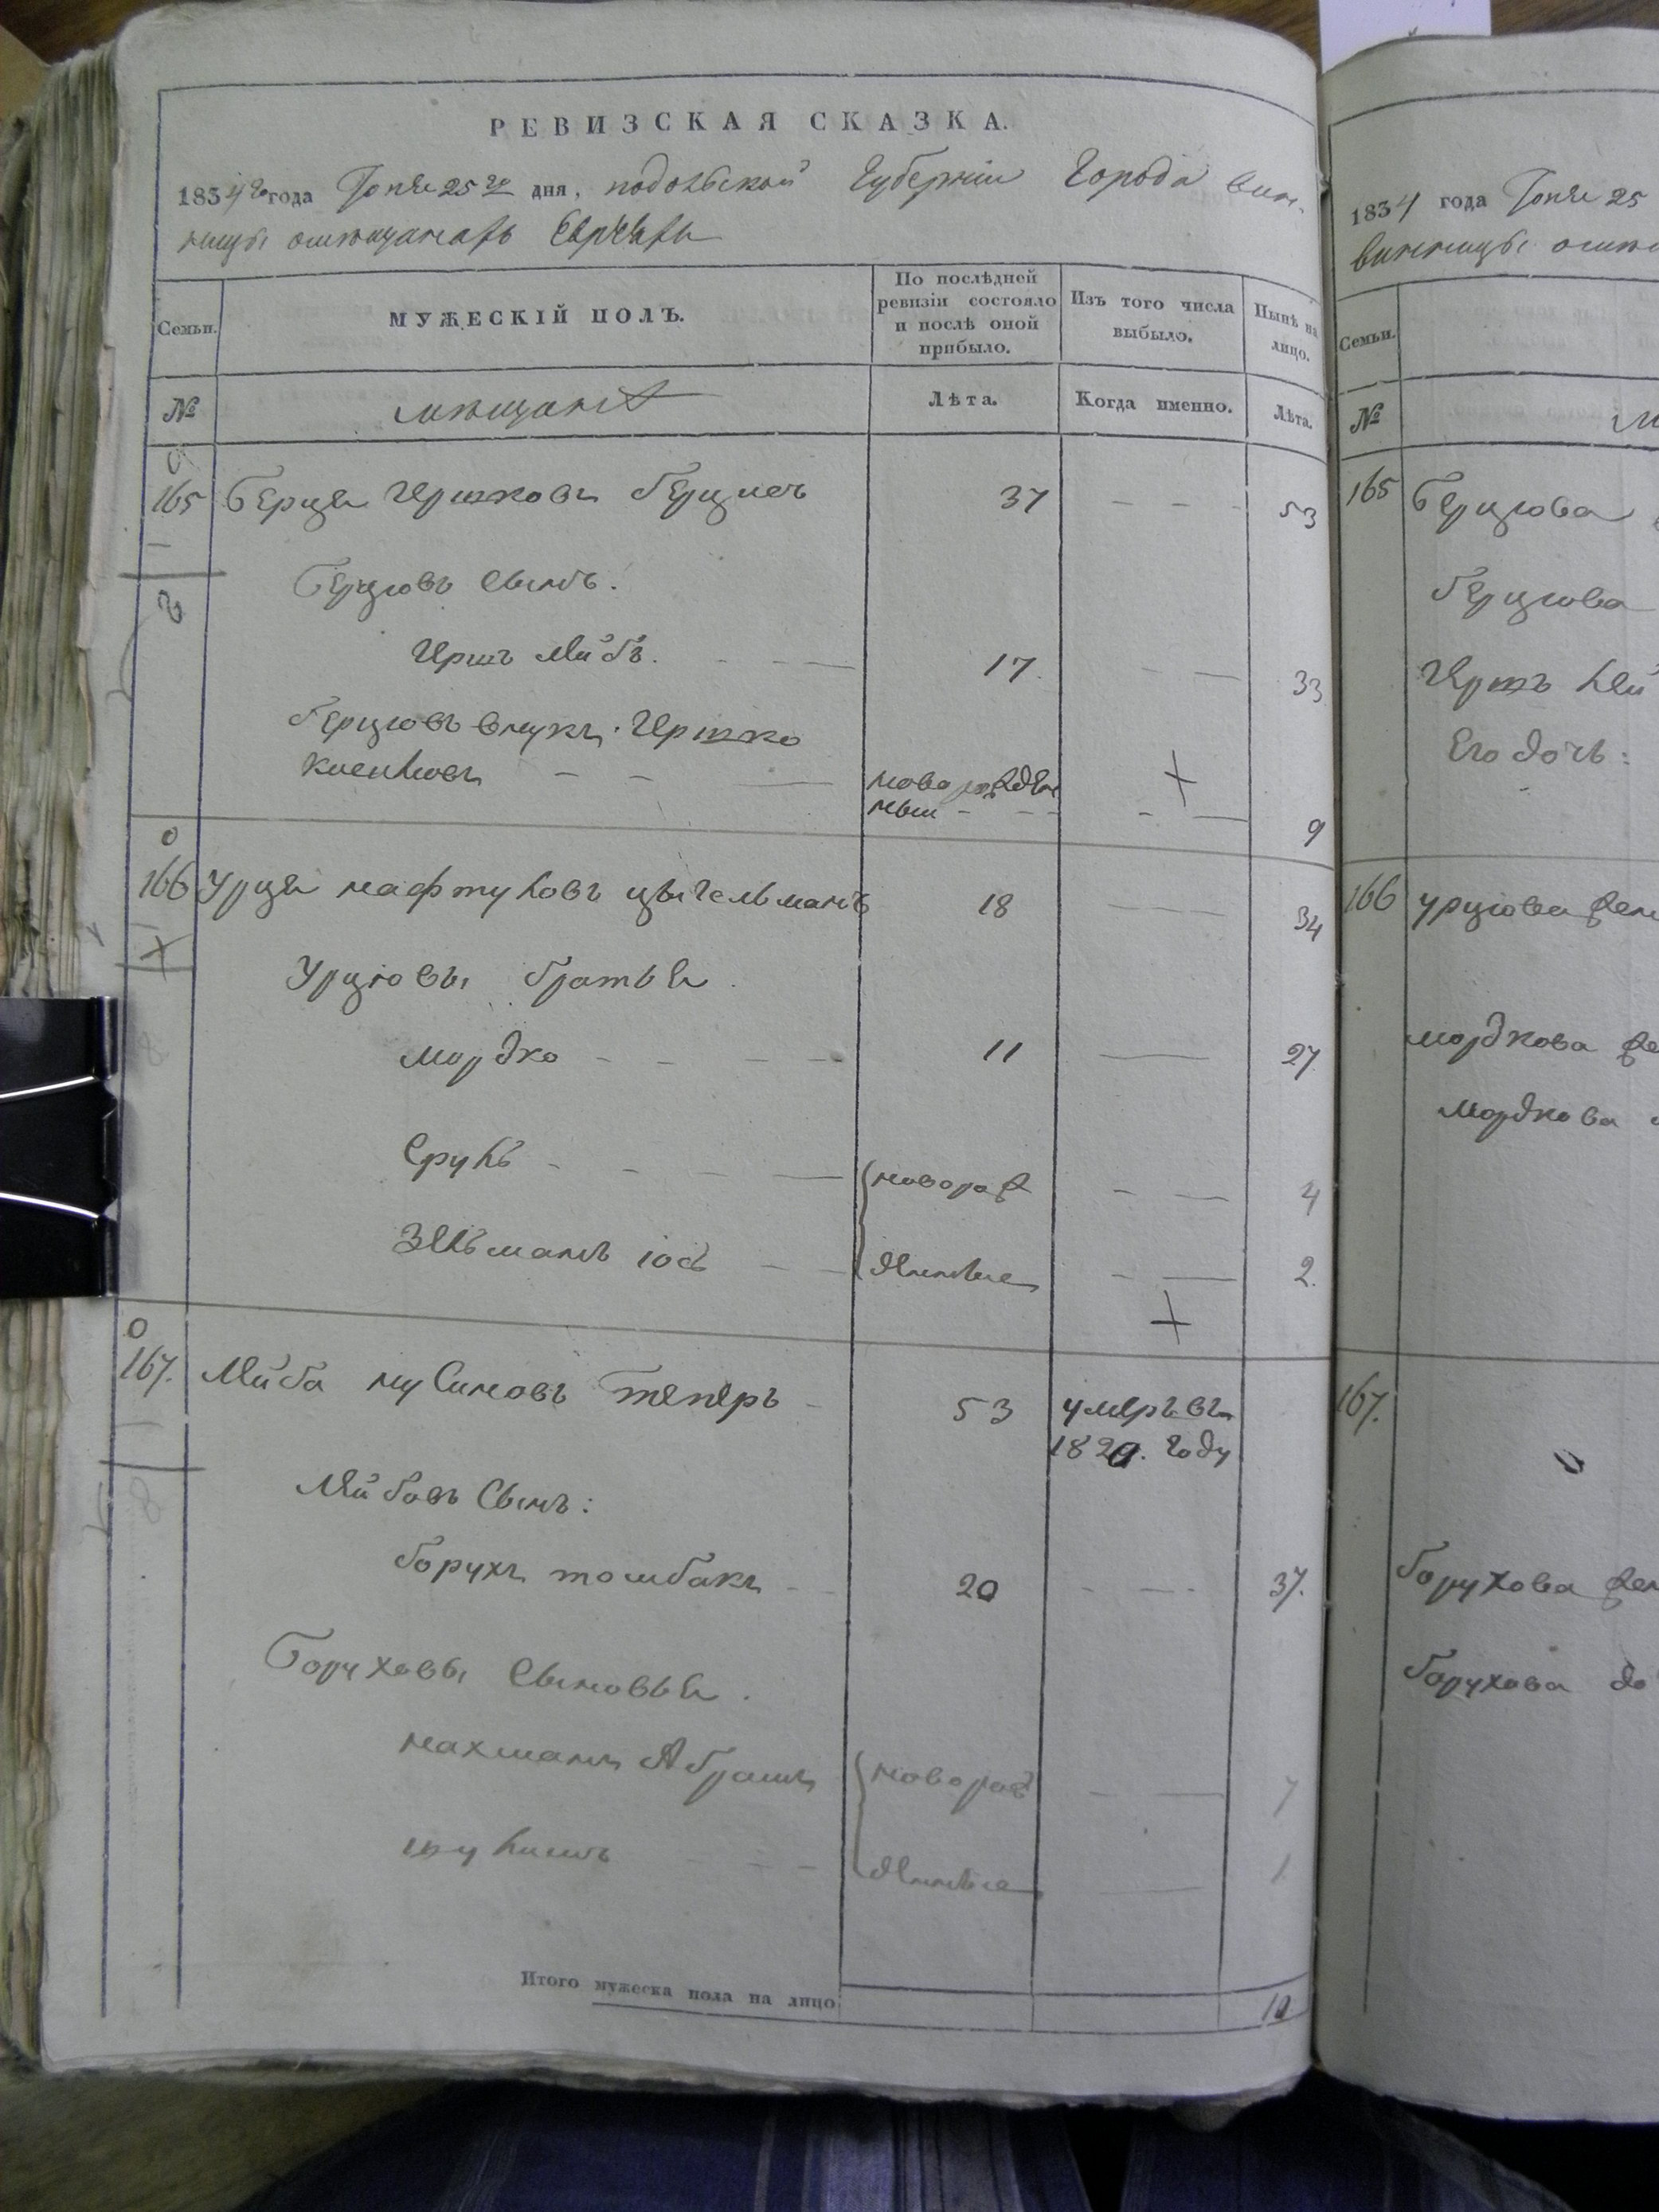 РЕВИЗСКАЯ СКАЗКА.
1834го года Іюня 25го дня, подольской Губерніи Города Вин-
ницы омѣщанахъ Евреяхъ
Семьи.
МУЖЕСКІЙ ПОЛЪ.
По послѣдней ревизіи состояло и послѣ оной прибыло.
Изъ того числа выбыло.
Нынѣ на лицо.
№
мѣщанѣ
Лѣта.
Когда именно.
Лѣта.
165 Берця Ершковъ 37 — — — 53
Берцовъ Сынъ.
Ершъ Лейбъ. — — — 17. — — 33
Берцовъ внукъ. Ершко
— — — новорожден
ный — — — — — 9
166 Урця нафтуловъ цыгельманъ 18 — — — 34
Урцовы братья.
мордко — — — — 11 — 27
Сруль — — — — новорож — — 4
Зельманъ іось — — денные — — 2.
167. Лейба нусимовъ Теперъ — 53 умеръ въ
1820. году
Лейбовъ Сынъ:
борухъ томбакъ — — 20 — — — 37.
Боруховы Сыновья.
нахманъ Абрамъ новорож — — 7
— — — денные — 1
Итого мужеска пола на лицо 10
1834 года Іюня 25
винницы
Семьи.
№
165 Берцова
берцова
Ершъ Лей
Его дочь:
166 урцова жен
мордкова же
мордкова
167.
борухова жен
борухова до